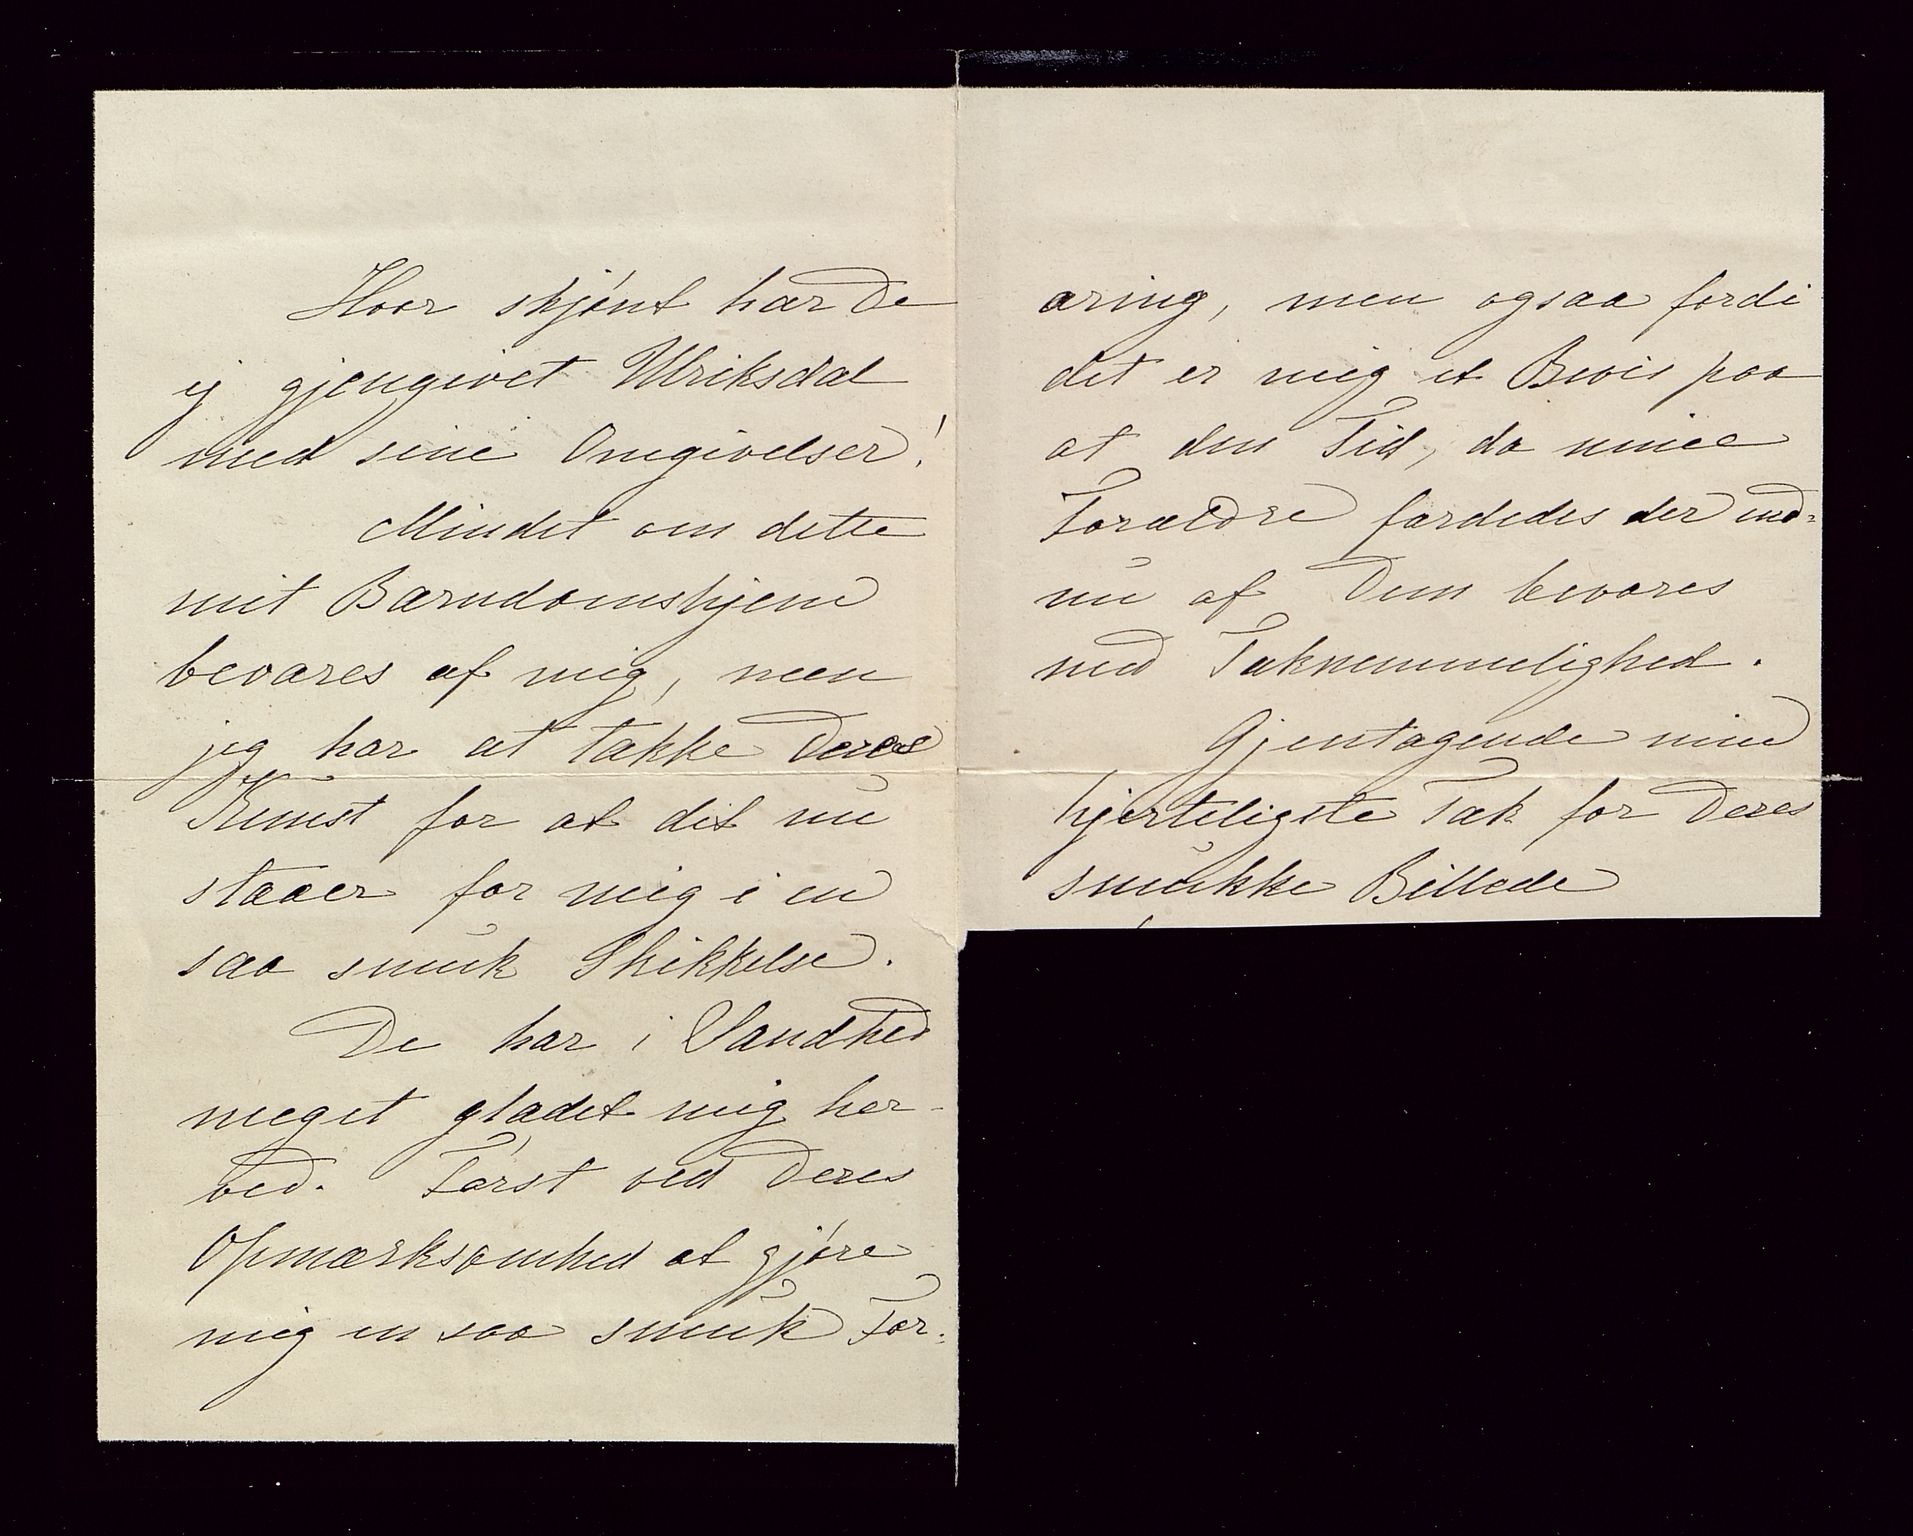 Hvor skjønt har De
ej gjengivet Ulriksdal
med sine Omgivelser!
Mindet om dette
mit Barndomshjem
bevares af mig, men
jeg har at takke Deres
Kunst for at det nu
staaer for mig i en
saa smuk Skikkelse.
De har i Sandhed
meget glædet mig her-
ved. Først ved Deres
Opmærksomhed at gjøre
mig en saa smuk For-
æring, men ogsaa fordi
det er mig et Bevis paa
at den Tid, da mine
Forældre færdedes der end-
nu af Dem bevares
med Taknemmelighed.
Gjentagende min
hjerteligste Tak for Deres
smukke Billede